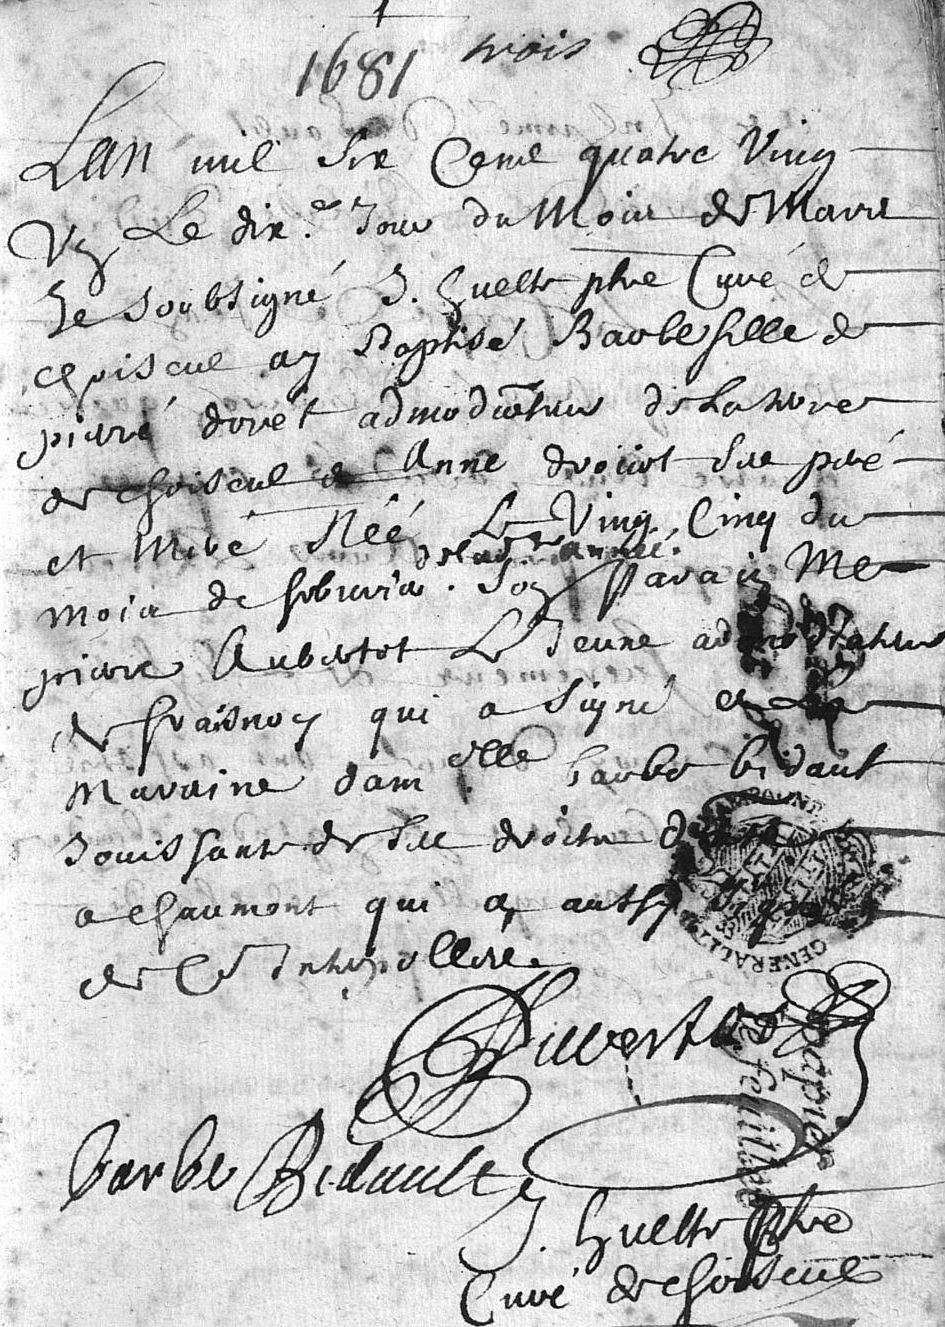 1681 trois
Lan mil six Cent quatre Ving
Un Le dix.e Jour du Mois de Mars
Je soubsigné J. huelle pbre Curé de
choiseul ay Baptisé Barbe fille de
pierre doret admodiateur de la terre
de choiseul & Anne drouot ses pere
et Mere Née Le Ving Cinq du
de lad. année.
mois de febvrier. Son Parain Me
pierre Aubertot Le Jeune admodiateur
de fraisnoy qui a signé et La
Maraine dam.elle barbe bidault
Jouissante de ses droits
a chaumont qui a aussy signé
de Ce Interpellere.
Aubertot
barbe Bidault
J. huelle pbre
Curé de choiseul
GENERALITE
Papier
feuille